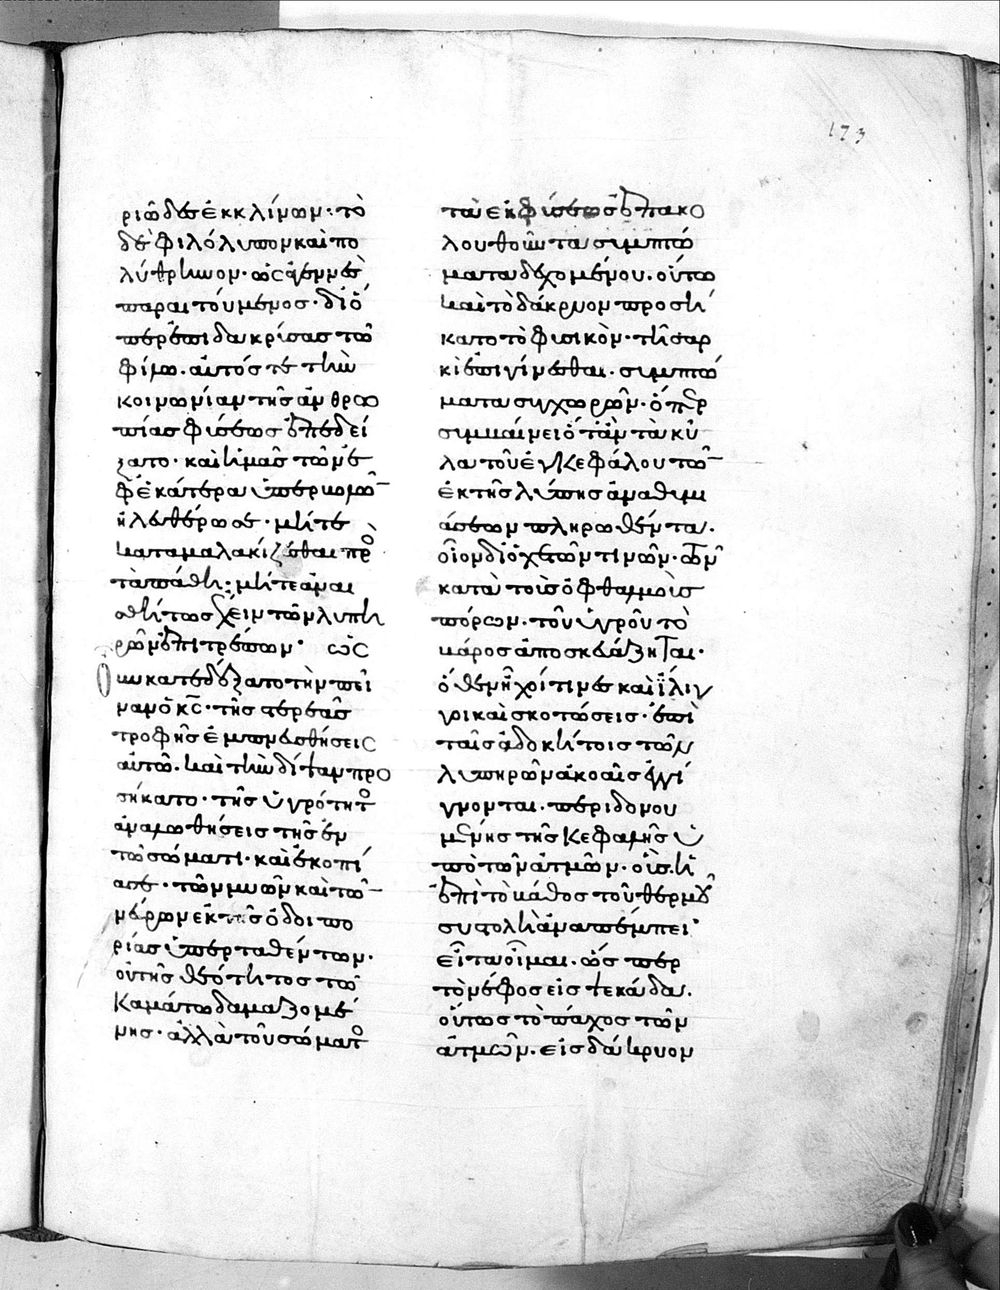 173
ριῶδες ἐκκλίνων· τὸ
δὲ φιλόλυπον καὶ πο
λύθρηνον· ὡς ἀγεννὲς
παραιτούμενος· διό
περ ἐπιδακρύσας τῶ
φίλω. αὐτός τε τὴν
κοινωνίαν τῆς ἀνθρω
πίας φύσεως ἐπεδεί
ξατο· καὶ ἡμᾶς τῶν ἐ
φ ἑκάτερα ὑπερ
ἠλευθέρωσε· μήτε
καταμαλακίζεσθαι πρὸς
τὰ πάθη· μήτε ἀναι
σθήτως ἔχειν τῶν λυπη
ρῶν ἐπιτρέπων· ὡς
κατεδέξατο τὴν πεῖ
ναν ὁ κς· τῆς στερεᾶς
τροφῆς
αὐτῶ. καὶ τὴν δίψαν προ
σήκατο· τῆς ὑγρότητος
ἀναλωθείσης τῆς ἐν
τῶ σώματι· καὶ ἐκοπί
ασε· τῶν μυῶν καὶ τῶν
νεύρων ἐκ τῆς ὁδοιπο
ρίας ὑπερταθέντων.
οὐ τῆς θεότητος τῶ
καμάτω δαμαζομέ
νης· ἀλλὰ τοῦ σώματος
τὰ ἐκ φύσεως ἐπακο
λουθοῦντα συμπτώ
ματα δεχομένου. οὕτω
καὶ τὸ δάκρυον προσή
κατο τὸ φυσικὸν· τῆ σαρ
κὶ ἐπιγίνεσθαι. συμπτώ
ματα συγχωρῶν· ὅπερ
συμβαίνει ὅταν τὰ κύ
λα τοῦ ἐγκεφάλου τῶν
ἐκ τῆς λύπης ἀναθυμι
άσεων πληρωθέντα.
οἷον δι ὀχετῶν τινῶν. τῶν
κατὰ τοῖς ὀφθαλμοῖς
πόρων. τοῦ ὑγροῦ τὸ
βάρος ἀποσκευάζηται.
ὅθεν ἦχοί τινες καὶ ἴλιγ
γοι καὶ σκοτώσεις· ἐπὶ
ταῖς ἀδοκήτοις τῶν
λυπηρῶν ἀκοαῖς ἐγγί
γνονται. περιδονου
μένης τῆς κεφαλῆς ὑ
πὸ τῶν ἀτμῶν. οἷς ἡ
ἐπὶ τὸ βάθος τοῦ θερμοῦ
συστολὴ ἀναπέμπει·
εἶτα οἶμαι. ὥσπερ
τὸ νέφος εἰς ψεκάδα.
οὕτως τὸ πάχος τῶν
ἀτμῶν. εἰς δάκρυον